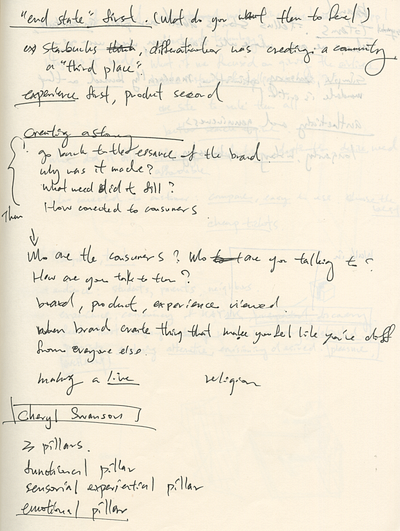 "end state" first. (What do you want them to feel?)
ex) Starbucks differentiator was creating a community
a "third place".
experience first, product second
Creating a story
go back to the essence of the brand.
why was it made?
What need did it fill?
How conected to consumers.
Then
Who are the consumers? Who are you talking to?
How are you talk to them?
brand, product, experience viewed.
when brand create thing that make you feel like you're diff
from everyone else
making a live religion
Cheryl Swanson
3 pillars.
functional pillar
sensorial experiential pillar
emotional pillar